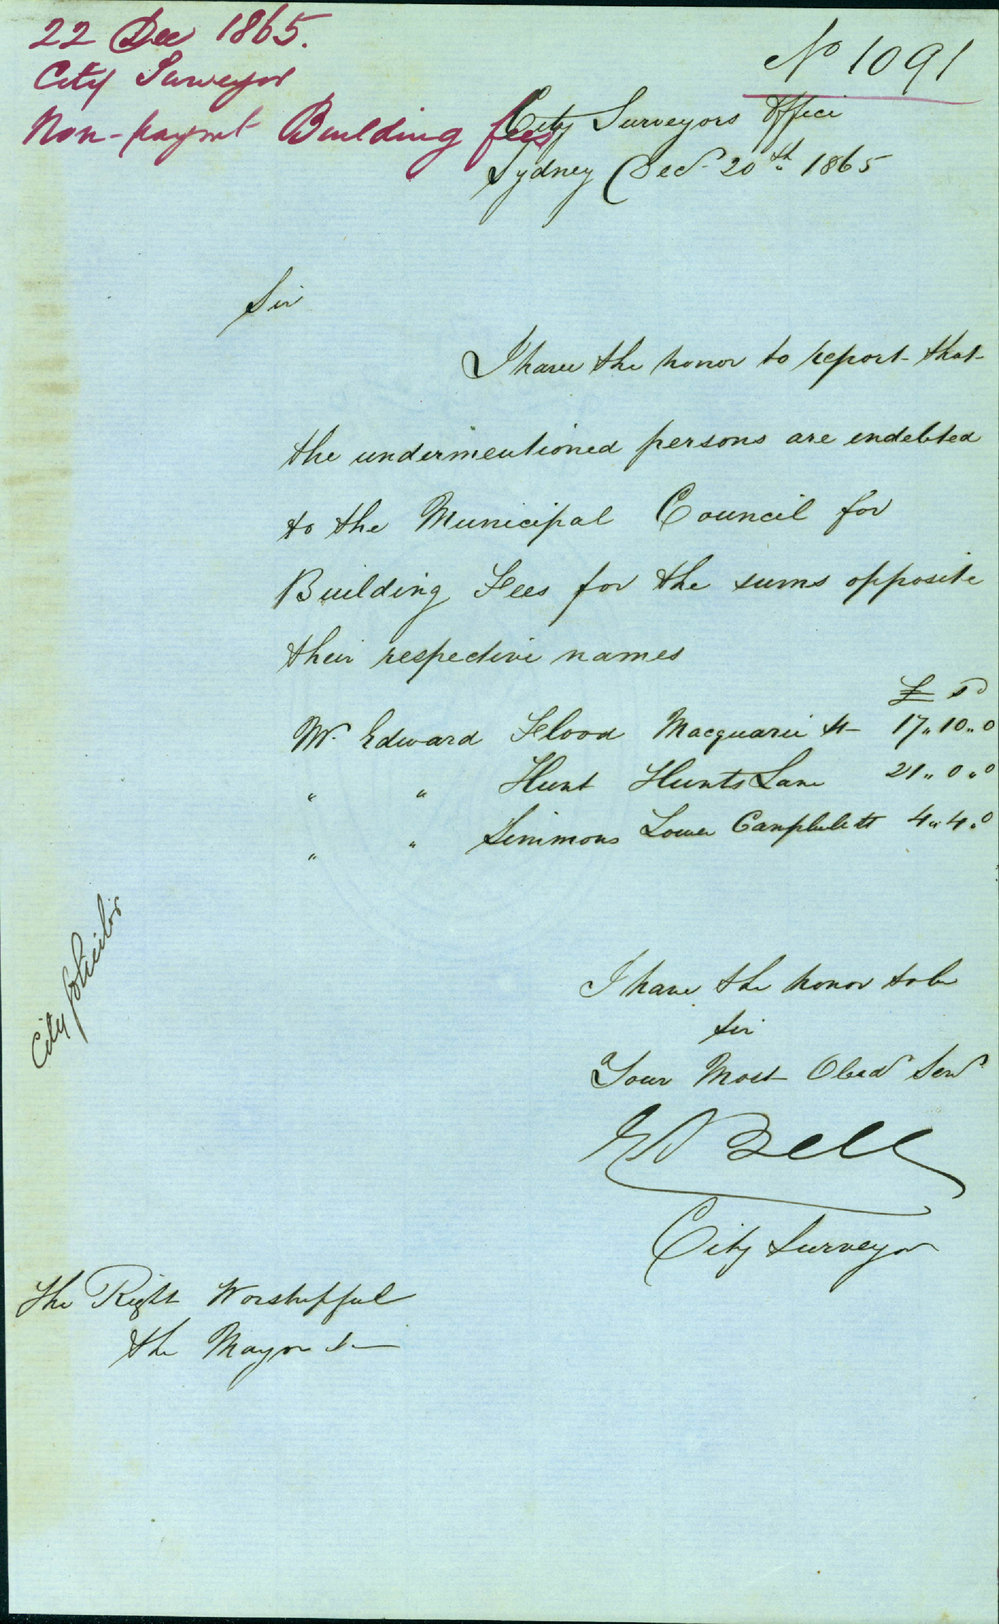 22 Dec 1865.
City Surveyor
Non-paymt Building fees
No 1091
City Surveyors Office
Sydney Decr 20th 1865
Sir
I have the honor to report that
the undermentioned persons are endebted
to the Municipal Council for
Building Fees for the sums opposite
their respective names
£ s D
Mr. Edward Flood Macquarie St 17,, 10,, 0
" " Hunt Hunts Lane 21,, 0,, 0
" " Simmons Lower Campbell St 4,, 4,, 0
City Solicitor
I have the honor to be
Sir
Your Most Obed Serv
E Bell
City Surveyor
The Right Worshipful
the Mayor